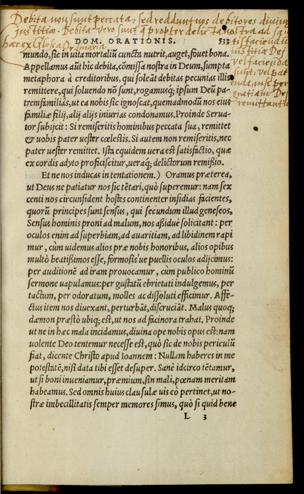 Debita non sunt peccata, sed reddunt nos debitores divinæ
justitiæ. Debita vero sunt propter delicta
DOM. ORATIONIS. 513
mundo, sic in uita mortaliũ cunctis nutrit, auget, fouet bona.
Appellamus aũt hic debita, cõmissa nostra in Deum, sumpta
metaphora à creditoribus, qui soleãt debitas pecunias illis
remittere, qui soluendo nõ sunt, rogamusq; ipsum Deũ pa-
tremfamiliâs, ut ea nobis sic ignoscat, quemadmodũ nos eius
familiæ filij, alij alijs iniurias condonamus. Proinde Serua-
tor subijcit: Si remiseritis hominibus peccata sua, remittet
& uobis pater uester cœlestis. Si autem non remiseritis, nec
pater uester remittet. Ista equidem uera est satisfactio, quæ
ex cordis adyto proficiscitur, ueraq; delictorum remissio.
Et ne nos inducas in tentationem.) Oramus præterea,
ut Deus ne patiatur nos sic tẽtari, quò superemur: nam sex
centi nos circunsident hostes continenter insidias facientes,
quorũ principes sunt sensus, qui secundum illud geneseos,
Sensus hominis proni ad malum, nos aßiduè solicitant: per
oculos enim ad superbiam, ad auaritiam, ad libidinem rapi
mur, cùm uidemus alios præ nobis honoribus, alios opibus
multò beatißimos esse, formosis'ue puellis oculos adijcimus:
per auditionẽ ad iram prouocamur, cùm publico hominũ
sermone uapulamus: per gustatũ ebrietati indulgemus, per
tactum, per odoratum, molles ac dissoluti efficimur. Affe-
ctus item nos diuexant, perturbãt, discruciãt. Malus quoq;
dæmon præstò ubiq; est, ut nos ad facinora trahat. Proinde
ut ne in hæc mala incidamus, diuina ope nobis opus est: nam
uolente Deo tentemur necesse est, quò sic de nobis periculũ
fiat, dicente Christo apud Ioannem: Nullam haberes in me
potestatẽ, nisi data tibi esset desuper. Sanè idcirco tẽtamur,
ut si boni inueniamur, præmium, sin mali, pœnam meritam
habeamus. Sed omnis huius clausulæ uis eò pertinet, ut no-
stræ imbecillitatis semper memores simus, quò si quid bene
L 3